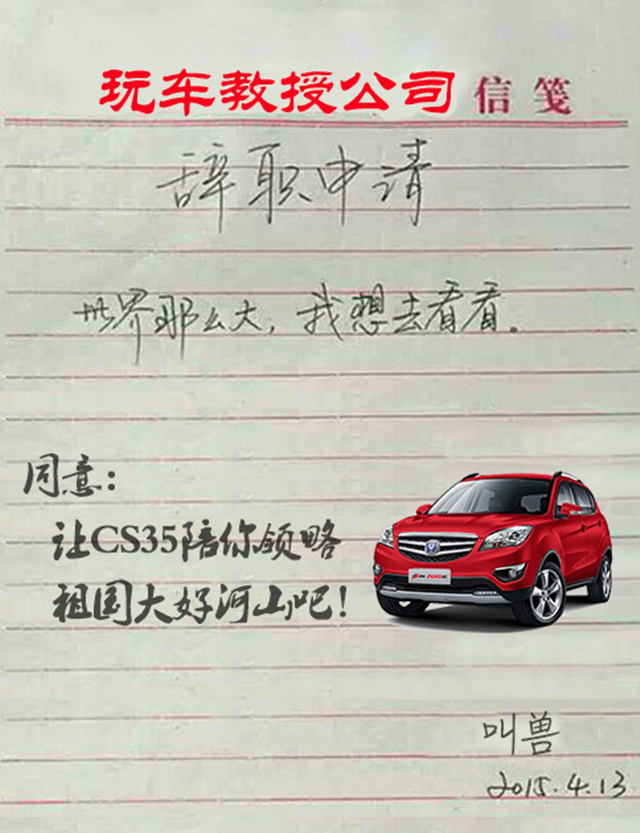 玩车教授公司 信笺
辞职申请
世界那么大，我想去看看。
同意：
让CS35陪你领略
祖国大好河山吧！
叫兽
2015.4.13